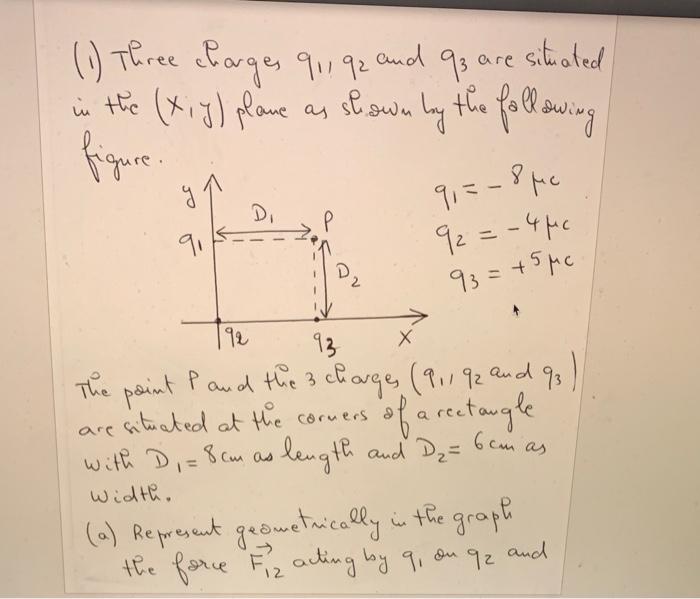 (1) Three charges q1, q2 and q3 are situated
in the (x,y) plane as shown by the following
figure.
y
q1 = - 8 μc
D1
P
q1
q2 = - 4 μc
D2
q3 = + 5 μc
q2
q3
x
The point P and the 3 charges (q1, q2 and q3)
are situated at the corners of a rectangle
with D1 = 8 cm as length and D2 = 6 cm as
width.
(a) Represent geometrically in the graph
the force F⃗12 acting by q1 on q2 and